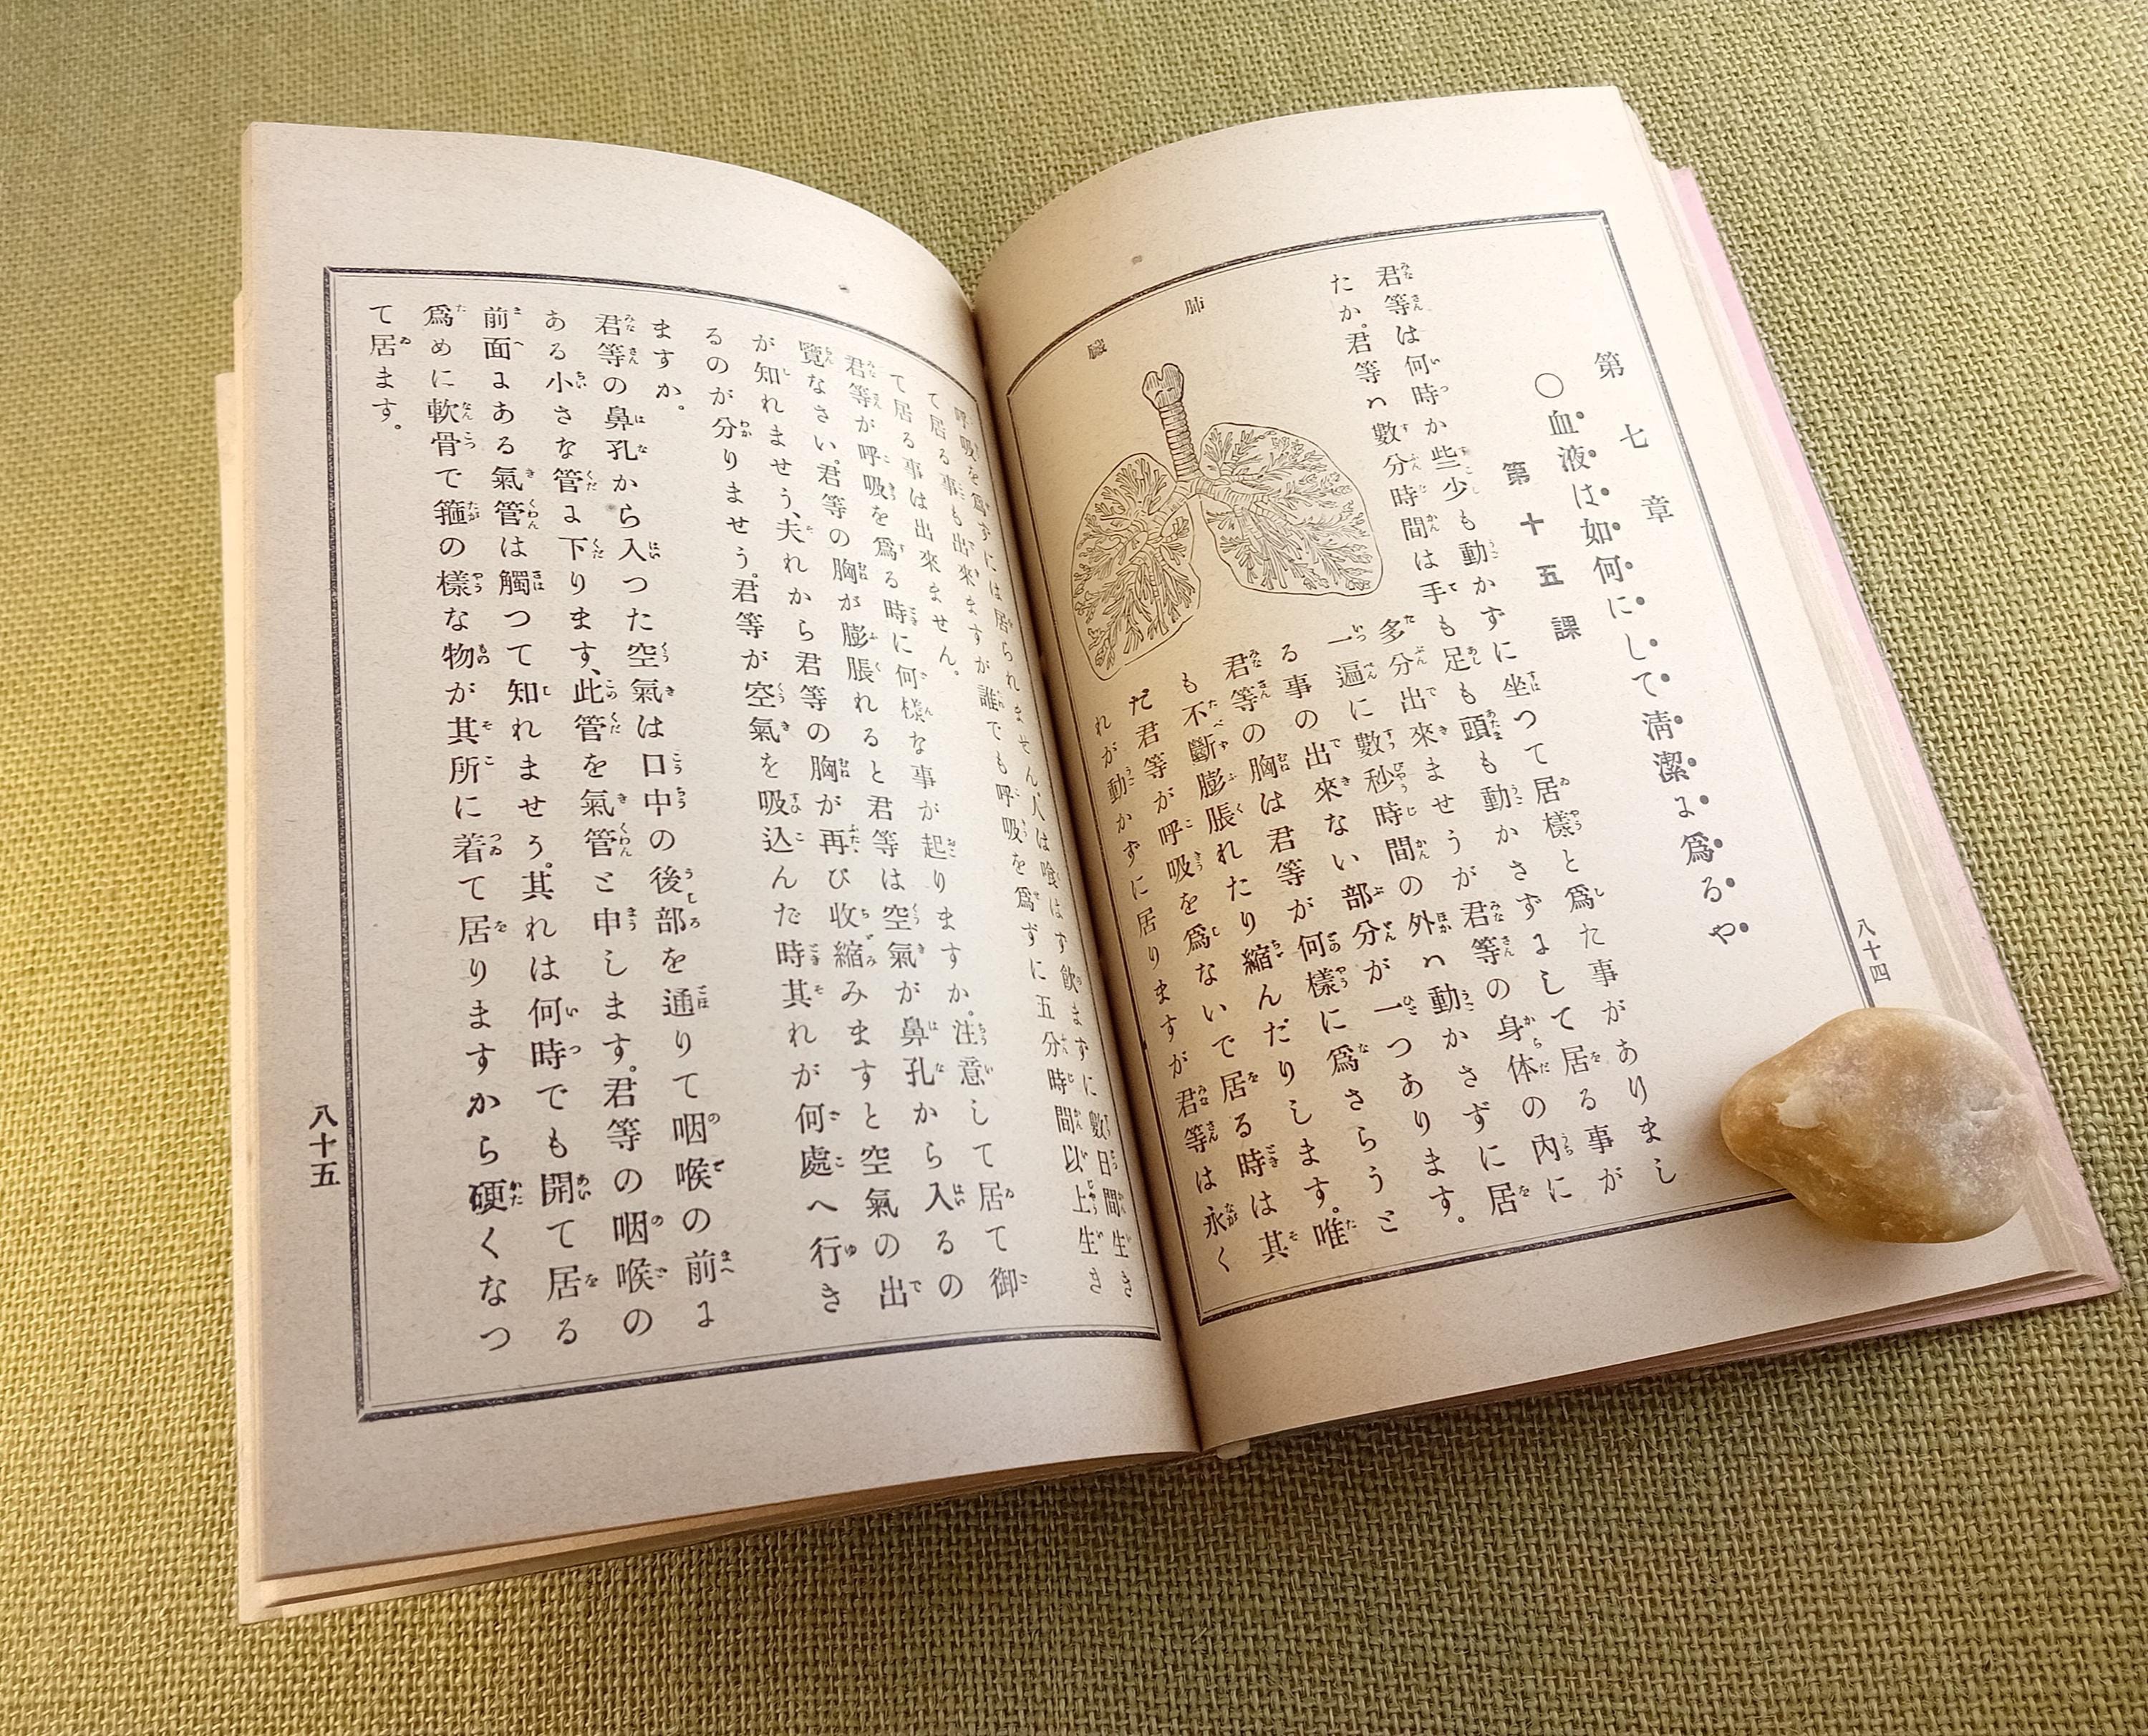 八十四
第七章
○血液は如何にして淸潔に爲るや
第十五課
君等は何時か些少も動かずに坐つて居樣と爲た事がありまし
たか。君等ハ數分時間は手も足も頭も動かさずにして居る事が
多分出來ませうが君等の身体の內に
一遍に數秒時間の外ハ動かさずに居
る事の出來ない部分が一つあります。
君等の胸は君等が何樣に爲さらうと
も不斷膨脹れたり縮んだりします。唯
だ君等が呼吸を爲ないで居る時は其
れが動かずに居りますが君等は永く
肺臟
呼吸を爲ずには居られません、人は喰はず飮まずに數日間生き
て居る事も出來ますが誰でも呼吸を爲ずに五分時間以上生き
て居る事は出來ません。
君等が呼吸を爲る時に何樣な事が起りますか。注意して居て御
覽なさい。君等の胸が膨脹れると君等は空氣が鼻孔から入るの
が知れませう、夫れから君等の胸が再び收縮みますと空氣の出
るのが分りませう。君等が空氣を吸込んだ時其れが何處へ行き
ますか。
君等の鼻孔から入つた空氣は口中の後部を通りて咽喉の前に
ある小さな管に下ります、此管を氣管と申します。君等の咽喉の
前面にある氣管は觸つて知れませう。其れは何時でも開て居る
爲めに軟骨で箍の樣な物が其所に着て居りますから硬くなつ
て居ます。
八十五